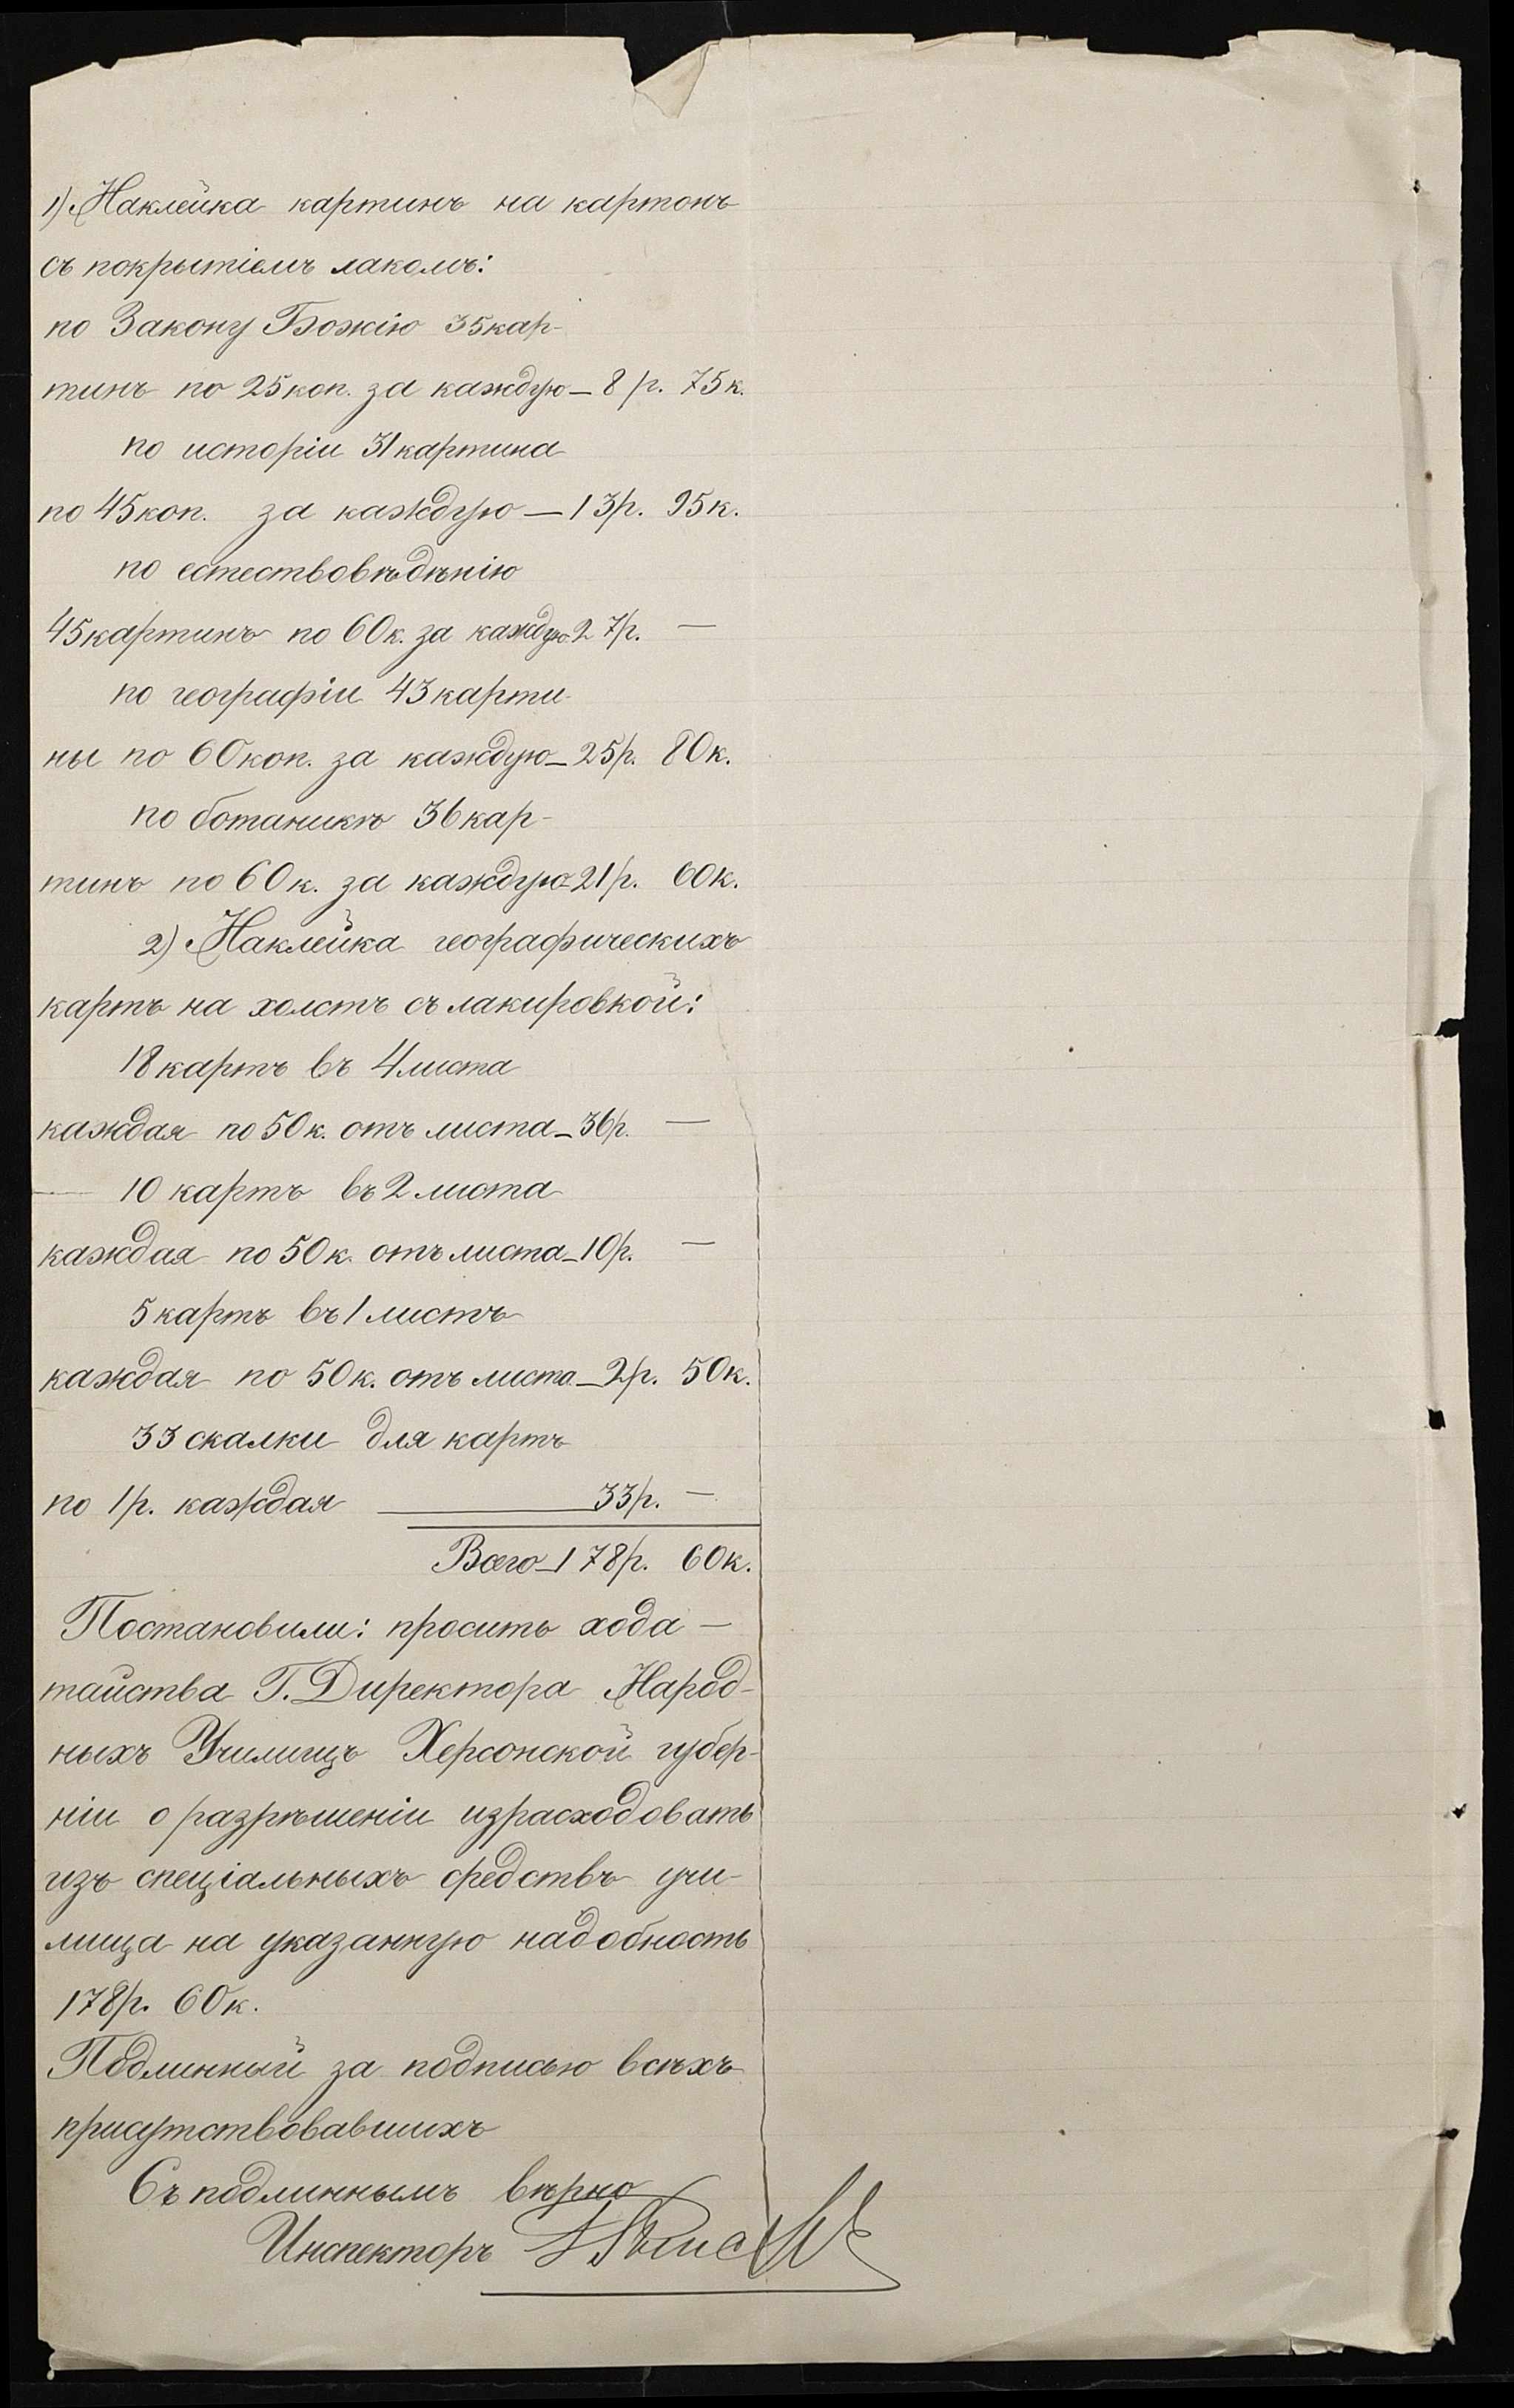 1) Наклейка картинъ на картонъ
съ покрытіемъ лакомъ:
по Закону Божію 35 кар-
тинъ по 25 коп. за каждую — 8 р. 75 к.
по исторіи 31 картина
по 45 коп. за каждую — 13 р. 95 к.
по естествовѣдѣнію
45 картинъ по 60 к. за каждую 27 р. —
по географіи 43 карти-
ны по 60 коп. за каждую — 25 р. 80 к.
по ботаникѣ 36 кар-
тинъ по 60 к. за каждую — 21 р. 60 к.
2) Наклейка географическихъ
картъ на холстъ съ лакировкой:
18 картъ въ 4 листа
каждая по 50 к. отъ листа — 36 р. —
10 картъ въ 2 листа
каждая по 50 к. отъ листа — 10 р. —
5 картъ въ 1 листъ
каждая по 50 к. отъ листа — 2 р. 50 к.
33 скалки для картъ
по 1 р. каждая — 33 р. —
Всего — 178 р. 60 к.
Постановили: просить хода-
тайства Г. Директора Народ-
ныхъ Училищъ Херсонской губер-
ніи о разрѣшеніи израсходовать
изъ спеціальныхъ средствъ учи-
лища на указанную надобность
178 р. 60 к.
Подлинный за подписью всѣхъ
присутствовавшихъ
Съ подлиннымъ вѣрно
Инспекторъ